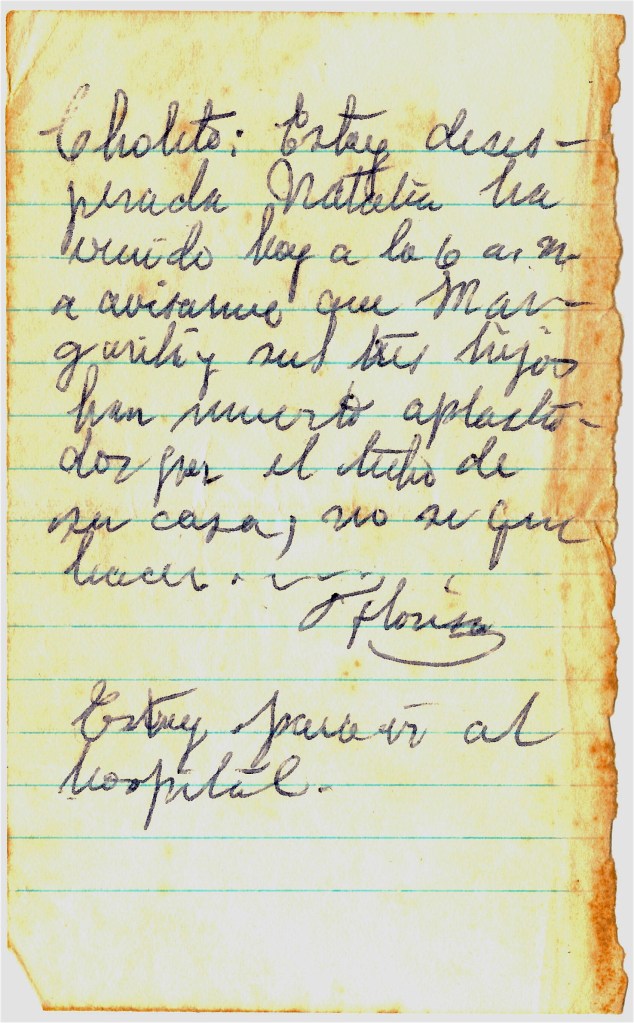 Cholito: Estoy deses-
perada Natalia ha
venido hoy a la 6 a.m.
a avisarme que Mar-
garita y sus tres hijos
han muerto aplasta-
dos por el techo de
su casa, no se que
hacer.
Florisa
Estoy para ir al
hospital.